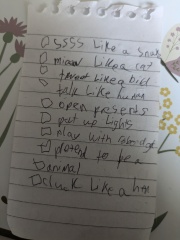 ssss Like a snake
miaow Like a cat
tweet Like a bird
talk Like
open presents
put up Lights
play with
pretend to be a
animal
cluck Like a hen